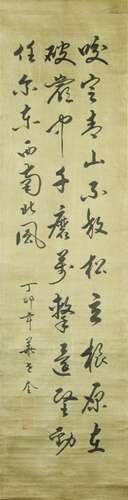 咬定青山不放松立根原在
破巖中千磨萬擊還堅勁
任尔东西南北风
丁卯年